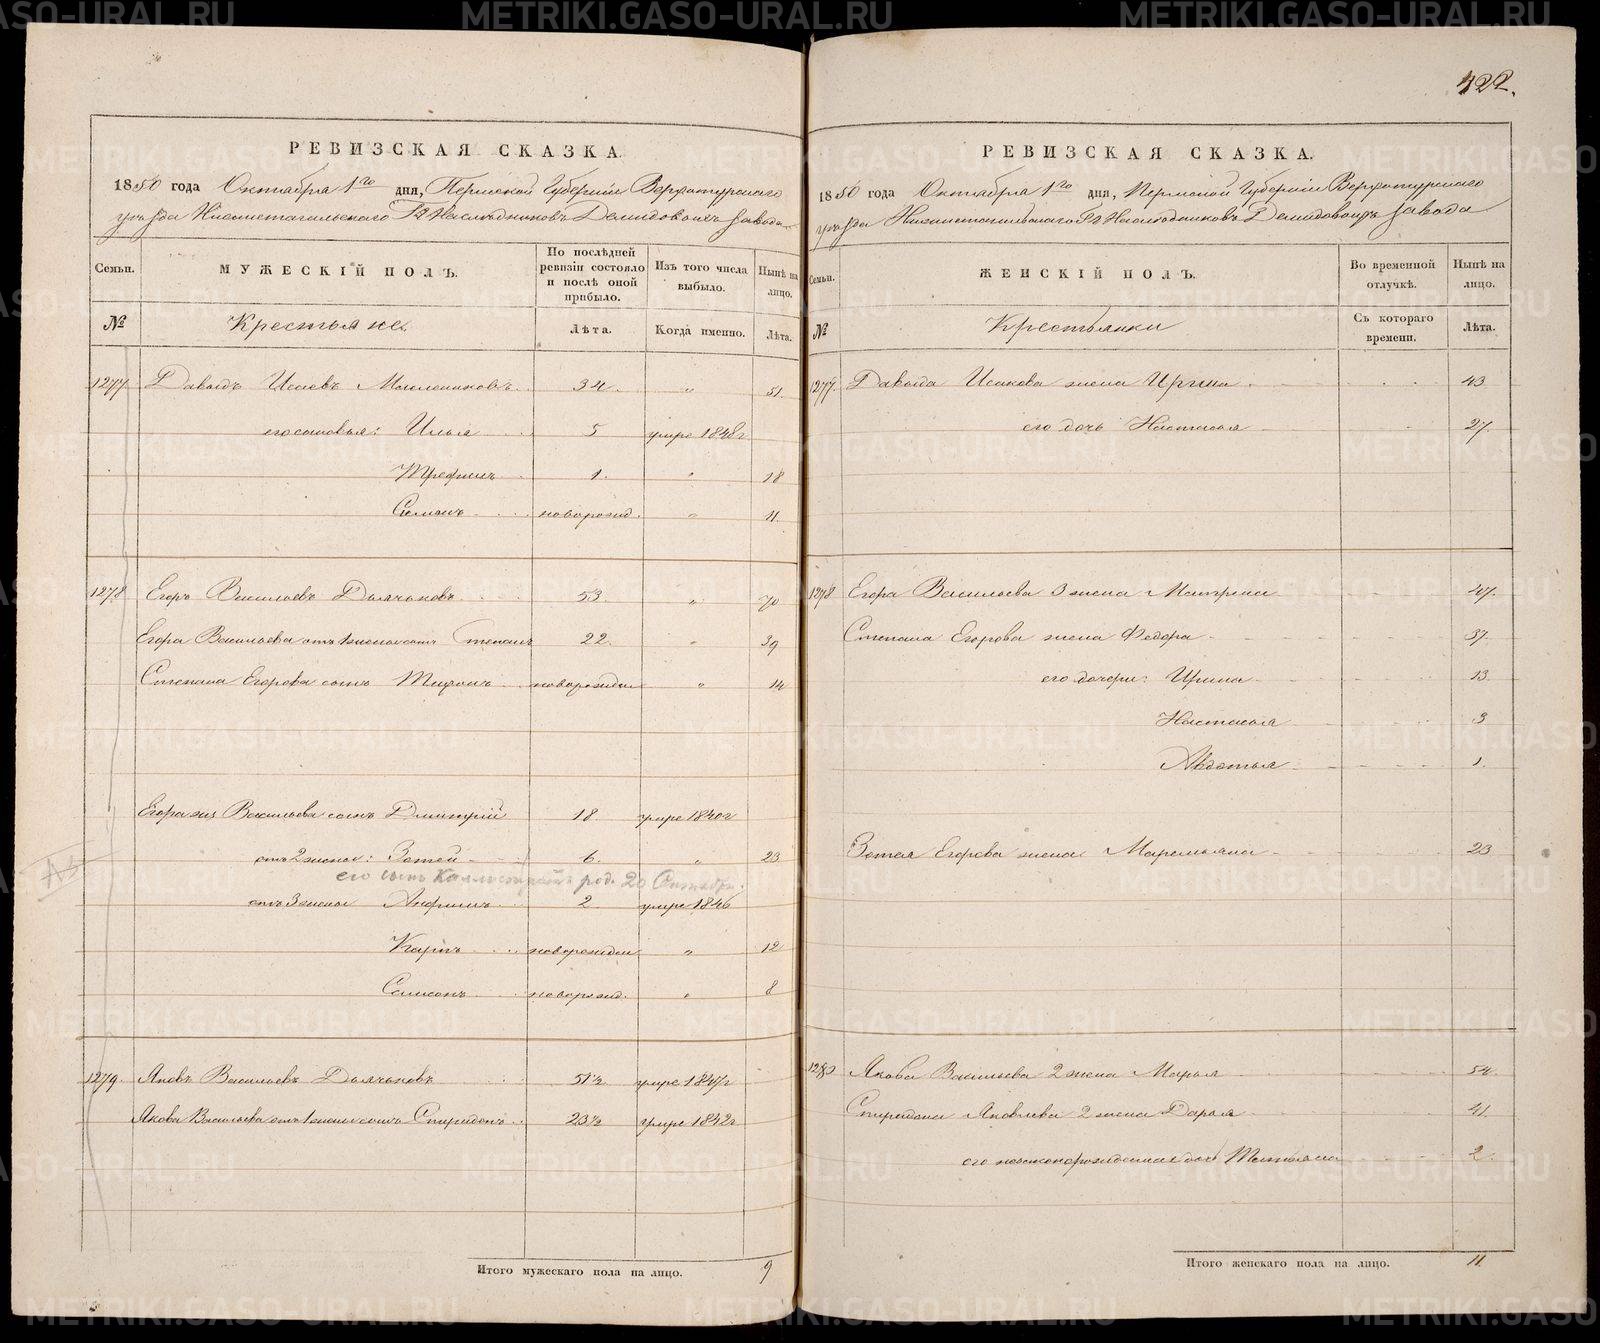 422.
РЕВИЗСКАЯ СКАЗКА.
1850 года Октября 1го дня, Пермской Губернии Верхотурскаго
уѣзда Нижнетагильскаго Гд Наслѣдниковъ Демидовыхъ завода
Семьи.
МУЖЕСКІЙ ПОЛЪ.
По послѣдней ревизіи состояло и послѣ оной прибыло.
Изъ того числа выбыло.
Нынѣ на лицо.
№ Крестьяне. Лѣта. Когда именно. Лѣта.
1277 Давыдъ Исаевъ 34. „ 51.
его сыновья: Илья 5 умре 1848г
Трефилъ 1. „ 18
Симонъ новорожд. „ 11.
1278 Егоръ Васильевъ Дьячковъ 53. „ 70
Егора Васильева отъ 1 жены сынъ Степанъ 22. „ 39
Степана Егорова сынъ Тихонъ новорожден „ 14
Егора жъ Васильева сынъ Дмитрій 18 умре 1840г
отъ 2 жены: Зотей 6. „ 23
его сынъ род. 20 Октября
отъ 3 жены Анфимъ 2 умре 1846
Карпъ новорожден „ 12
Самсонъ новорожд. „ 8
1279. Яковъ Васильевъ Дьячковъ 51½ умре 1847г
Якова Васильева отъ 1 жены сынъ Спиридонъ 23½ умре 1842г
Итого мужескаго пола на лицо. 9
РЕВИЗСКАЯ СКАЗКА.
1850 года Октября 1го дня, Пермской Губернии Верхотурскаго
уѣзда Нижнетагильскаго Гд Наслѣдниковъ Демидовыхъ завода
Семьи.
ЖЕНСКІЙ ПОЛЪ.
Во временной отлучкѣ.
Нынѣ на лицо.
№ Крестьянки Съ котораго времени. Лѣта.
1277. Давыда Исакова жена Ирина 43
его дочь Настасья 27.
1278 Егора Васильева 3 жена Матрена 47.
Степана Егорова жена Федора 37.
его дочери: Ирина 13
Настасья 3
Авдотья 1.
Зотея Егорова жена Маремьяна 23
1280 Якова Васильева 2 жена Марья 54.
Спиридона Яковлева 2 жена Дарья 41.
его новорожденная дочь Татьяна 2.
Итого женскаго пола на лицо. 11.
METRIKI.GASO-URAL.RU